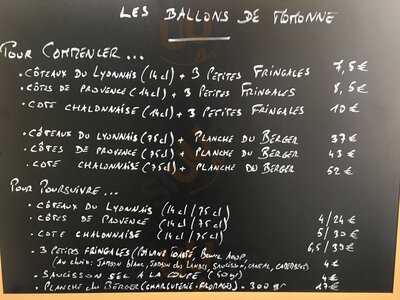 LES BALLONS DE MOMONNE
POUR COMMENCER ...
. CÔTEAUX DU LYONNAIS (14cl) + 3 PETITES FRINGALES 7,5€
. CÔTES DE PROVENCE (14cl) + 3 PETITES FRINGALES 8,5€
. COTE CHALONNAISE (14cl) + 3 PETITES FRINGALES 10€
. CÔTEAUX DU LYONNAIS (75cl) + PLANCHE DU BERGER 37€
. CÔTES DE PROVENCE (75cl) + PLANCHE DU BERGER 43€
. COTE CHALONNAISE (75cl) + PLANCHE DU BERGER 52€
POUR POURSUIVRE ...
. CÔTEAUX DU LYONNAIS (14cl/75cl) 4/24€
. CÔTES DE PROVENCE (14cl/75cl) 5/30€
. COTE CHALONNAISE (14cl/75cl) 6,5/39€
. 3 PETITES FRINGALES (TOASTÉ, BEURRE 4€
(AU CHOIX: JAMBON BLANC, JAMBON DES LANDES, SAUCISSON, CANTAL,
. SAUCISSON SEC À LA COUPE (50gr) 4€
. PLANCHE DU BERGER (CHARCUTERIE-FROMAGES) - 300gr 17€